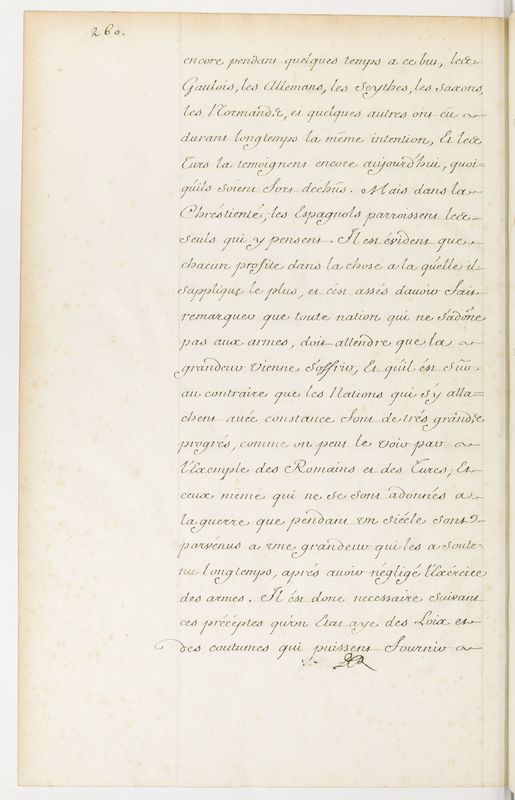 260.
encore pendant quelques temps a ce but, les
Gaulois, les Allemans, les Scythes, les Saxons,
les Normands, et quelques autres ont eü
durant longtemps la même intention, Et les
Turs la temoignent encore aujourd'hui, quoi=
qu'ils soient fort déchûs. Mais dans la
Chréstienté, les Espagnols parroissent les
seuls qui y pensent. Il est évident que
chacun profite dans la chose a la quelle il
s'applique le plus, et c'ést assés d'avoir fait
remarquer que toute nation qui ne s'adône
pas aux armes, doit attendre que la
grandeur vienne s'offrir, Et qu'il ést sûr
au contraire que les Nations qui s'y atta=
chent avéc constance font de trés grands
progrés, comme on peut le voir par
l'Exemple des Romains et des Turcs; Et
ceux meme qui ne se sont adonnés a
la guerre que pendant un siécle sont
parvénus a une grandeur qui les a soute=
nu longtemps, aprés avoir négligé l'Exércice
des armes. Il ést donc necessaire suivant
ces précéptes qu'un Etat aye des Loix et
des coutumes qui puissent fournir a